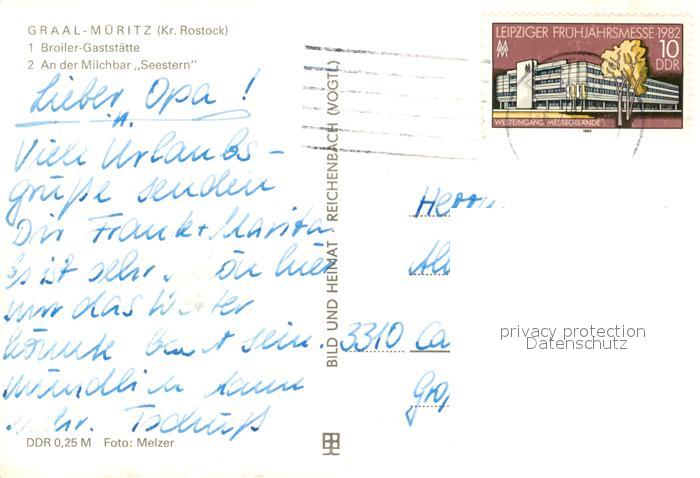 GRAAL-MÜRITZ (Kr. Rostock)
1 Broiler-Gaststätte
2 An der Milchbar „Seestern"
Lieber Opa!
Viele Urlaubs-
grüße senden
Dir Frank + Marita.
Es ist sehr schön hier
nur das Wetter
könnte besser sein.
mündlich dann
mehr. Tschüß
DDR 0,25 M Foto: Melzer
BILD UND HEIMAT REICHENBACH (VOGTL)
LEIPZIGER FRÜHJAHRSMESSE 1982
10
DDR
WESTEINGANG MESSEGELÄNDE
1982
Herrn
3310 Ca
privacy protection
Datenschutz